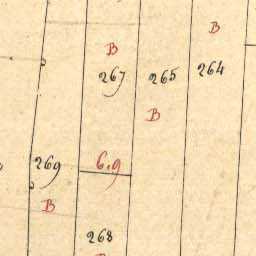 B
B
267
265
264
B
269
6.9
B
268